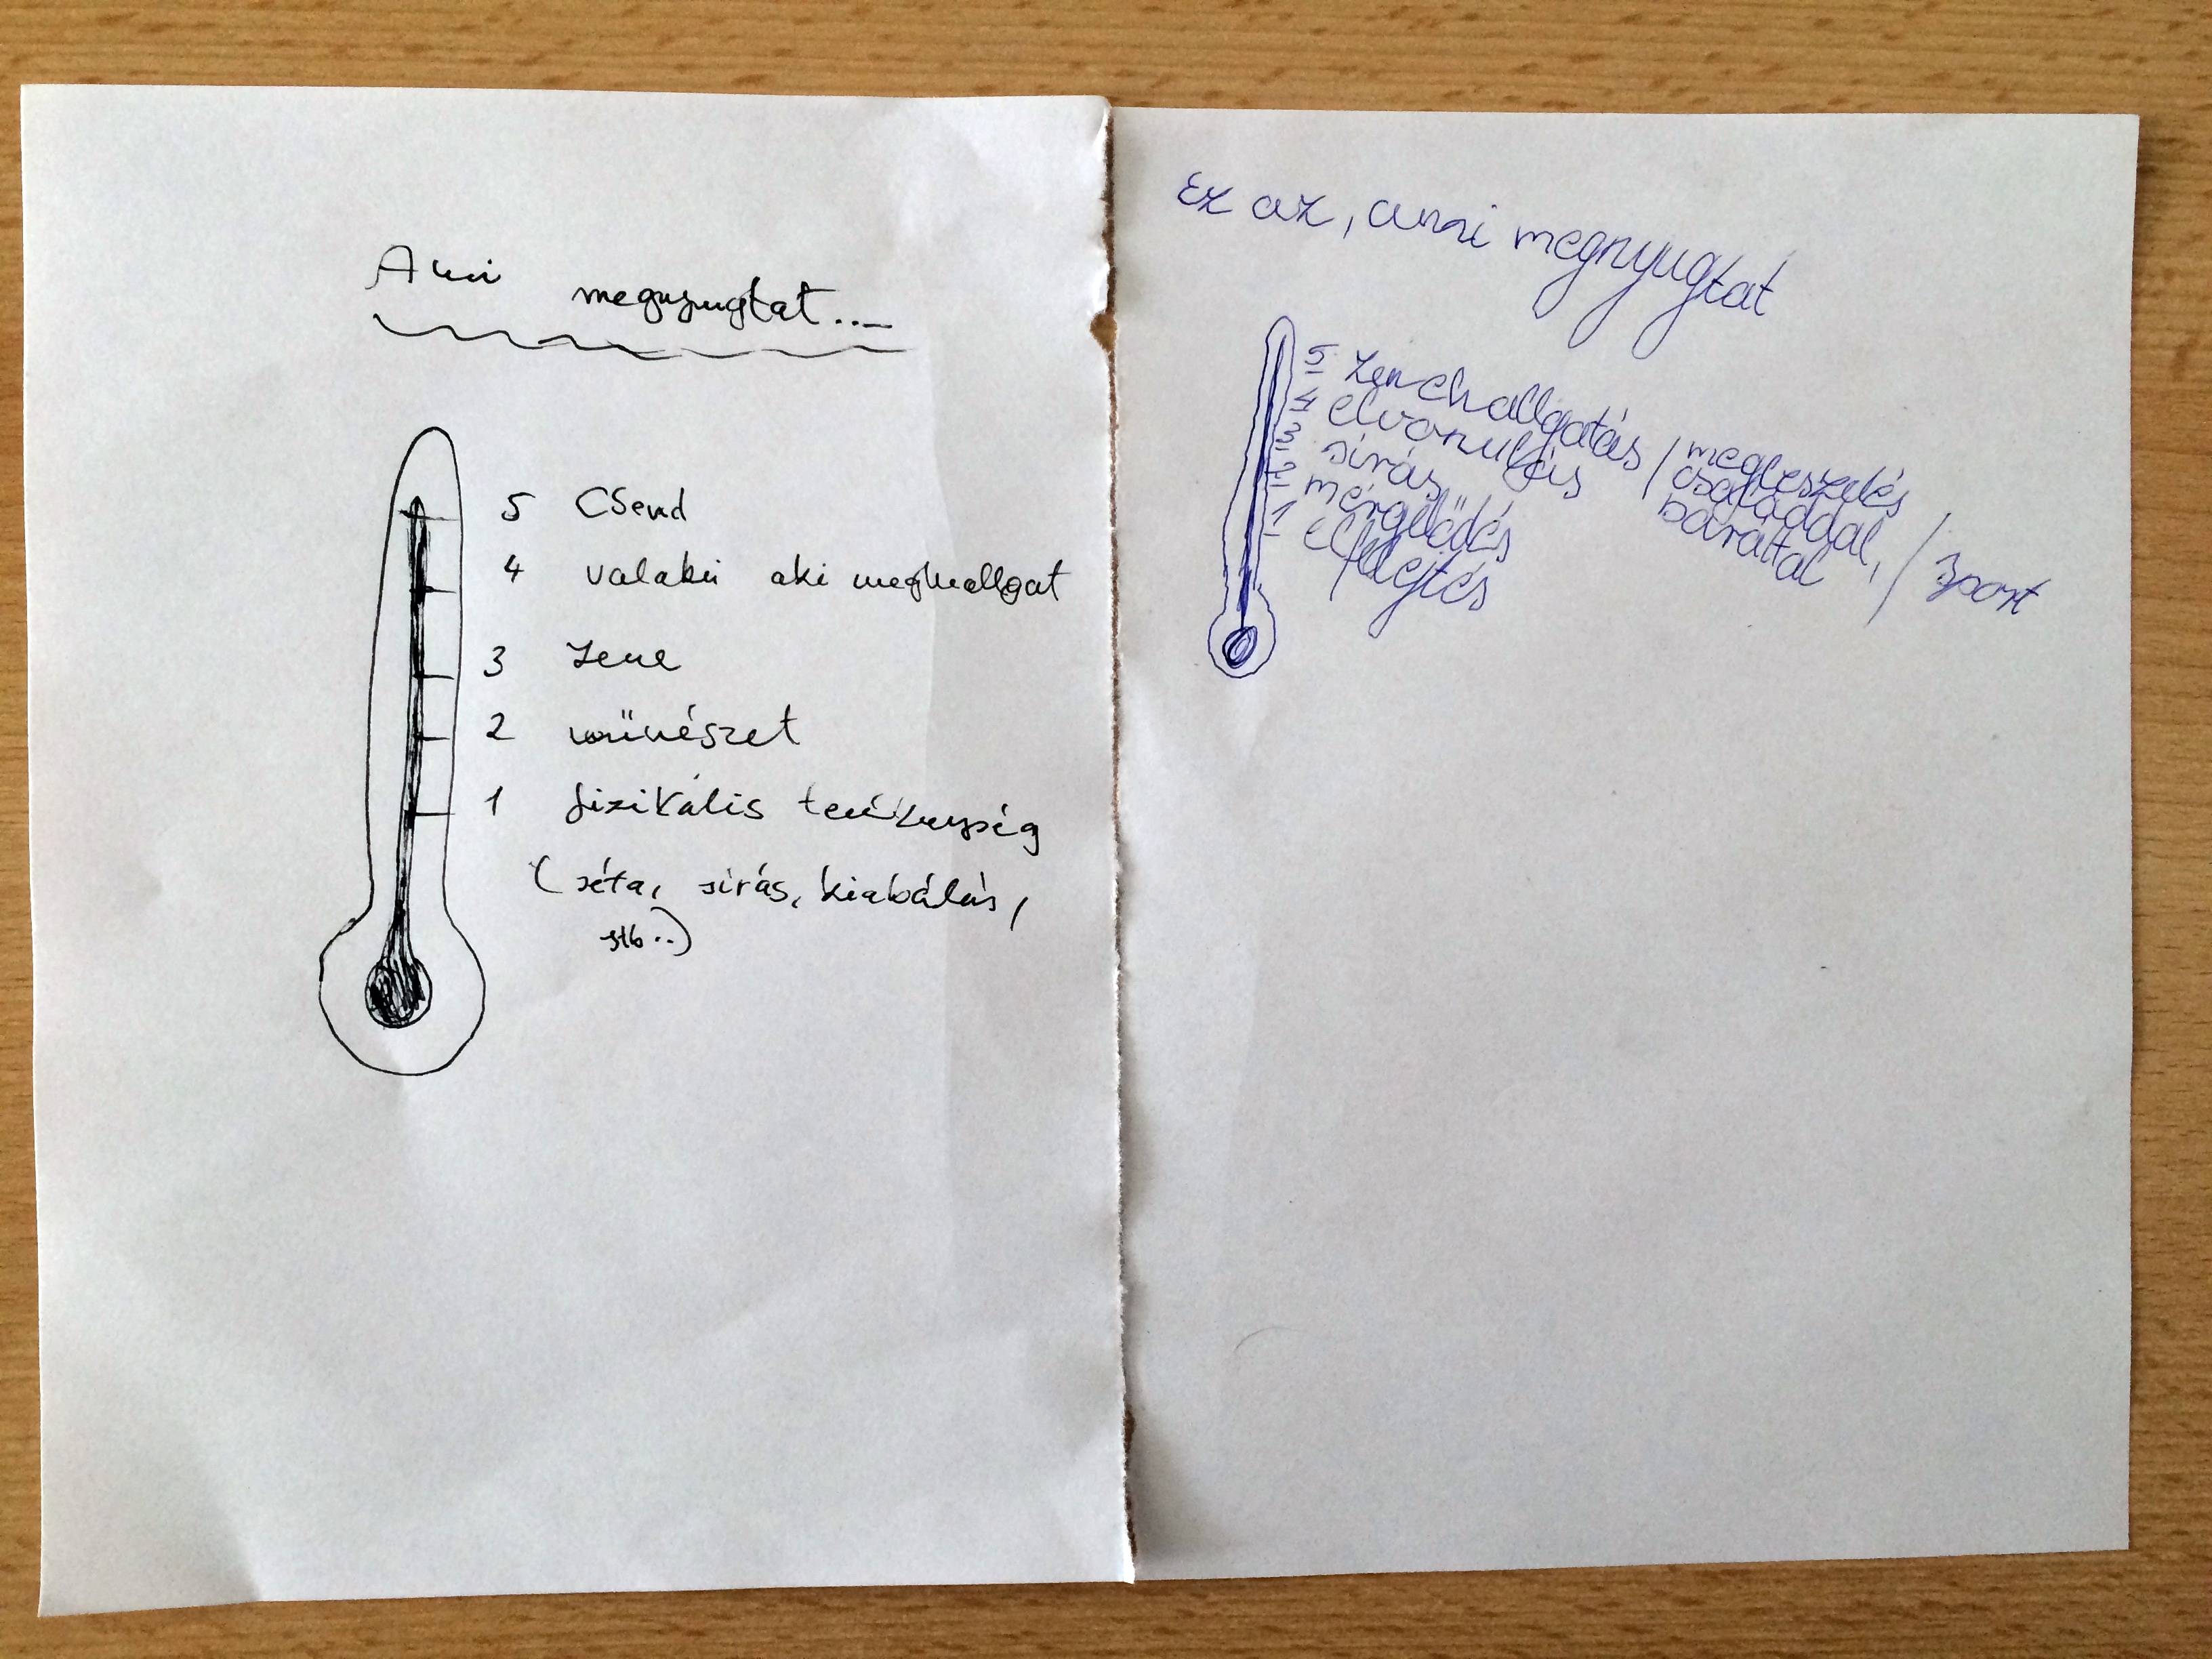 Ami megnyugtat...
5 Csend
4 valaki aki meghallgat
3 Zene
2 művészet
1 fizikális tevékenység
(séta, sírás, kiabálás,
stb..)
Ez az, ami megnyugtat
5 zenehallgatás / megbeszélés családdal, baráttal / sport
4 elvonulás
3 sírás
2 mérgelődés
1 elfelejtés